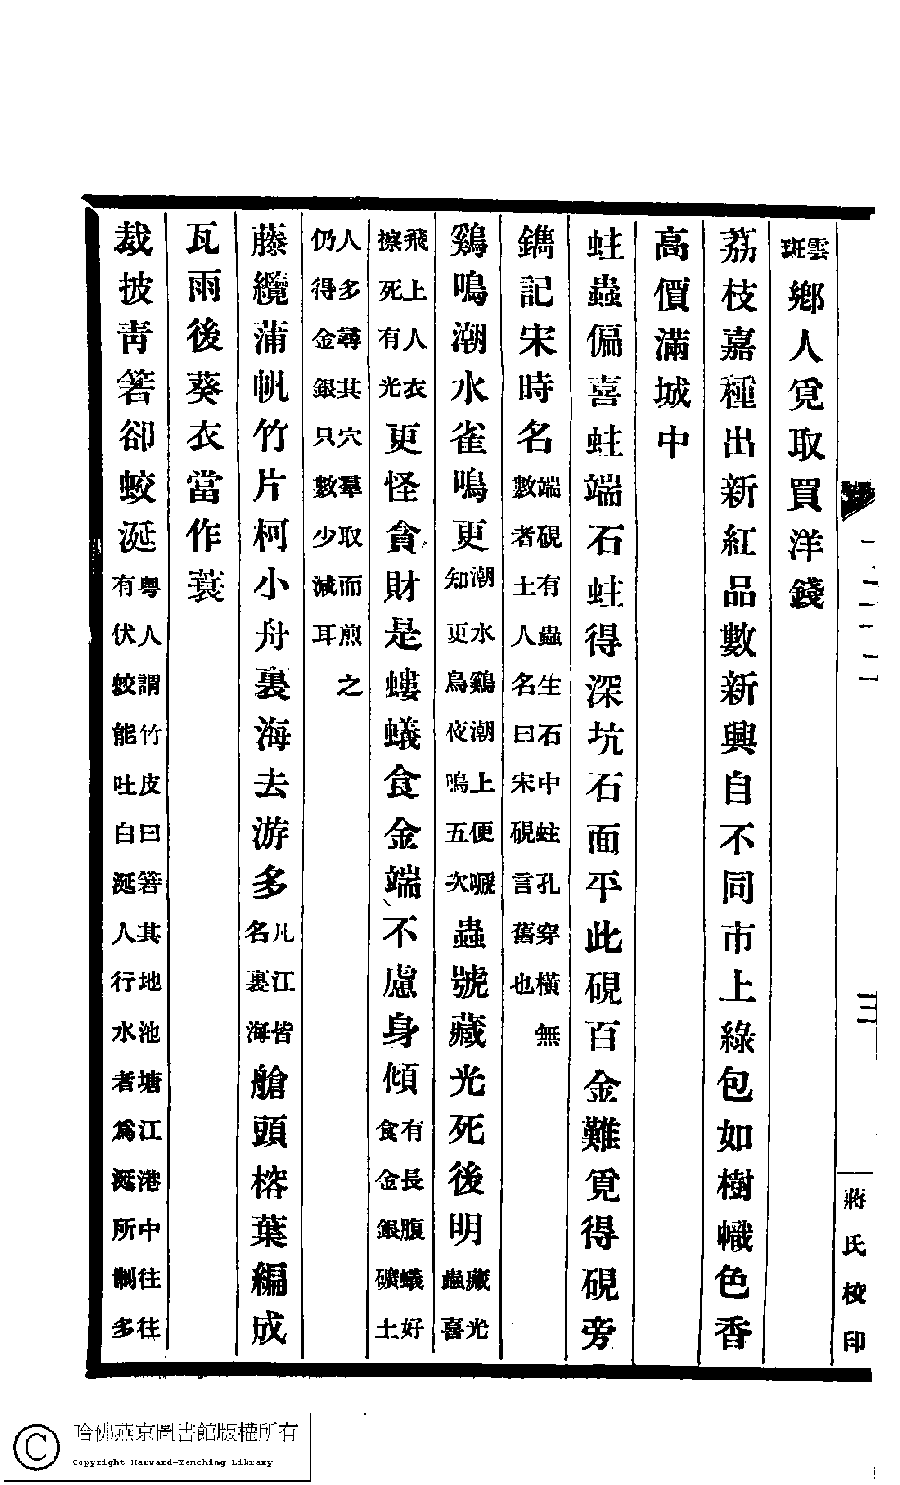 三
蔣氏校印
雲斑鄉人覓取買洋錢
荔枝嘉種出新紅品數新興自不同市上綠包如樹幟色香
高價滿城中
蛀蟲偏喜蛀端石蛀得深坑石面平此硯百金難覓得硯旁
鐫記宋時名端硯有蟲生石中蛀孔穿橫無數者土人名曰宋硯言舊也
鷄鳴潮水雀鳴更潮水鷄潮上便啼知更鳥夜鳴五次蟲號藏光死後明藏光蟲喜
飛上人衣擦死有光更怪貪財是螻蟻食金端不慮身傾有長腹蟻好食金銀礦土
人多尋其穴羣取而煎之仍得金銀只數少減耳
藤纜蒲帆竹片柯小舟裏海去游多凡江皆名裏海艙頭榕葉編成
瓦雨後葵衣當作蓑
裁披青箬卻蛟涎粵人謂竹皮曰箬其地池塘江港中往往有伏蛟能吐白涎人行水者爲涎所制多
哈佛燕京圖書館版權所有
Copyright Harvard-Yenching Library